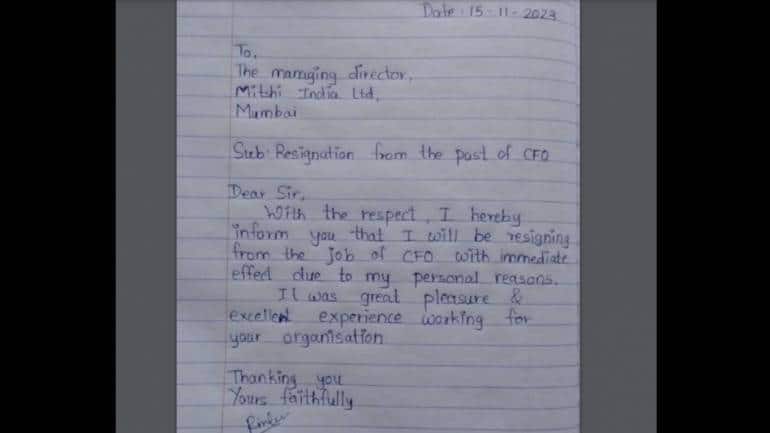 Date : 15-11-2023
To,
The managing director,
Mitshi India Ltd,
Mumbai
Sub: Resignation from the post of CFO
Dear Sir,
With the respect, I hereby
inform you that I will be resigning
from the job of CFO with immediate
effect due to my personal reasons.
It was great pleasure &
excellent experience working for
your organisation
Thanking you
Yours faithfully